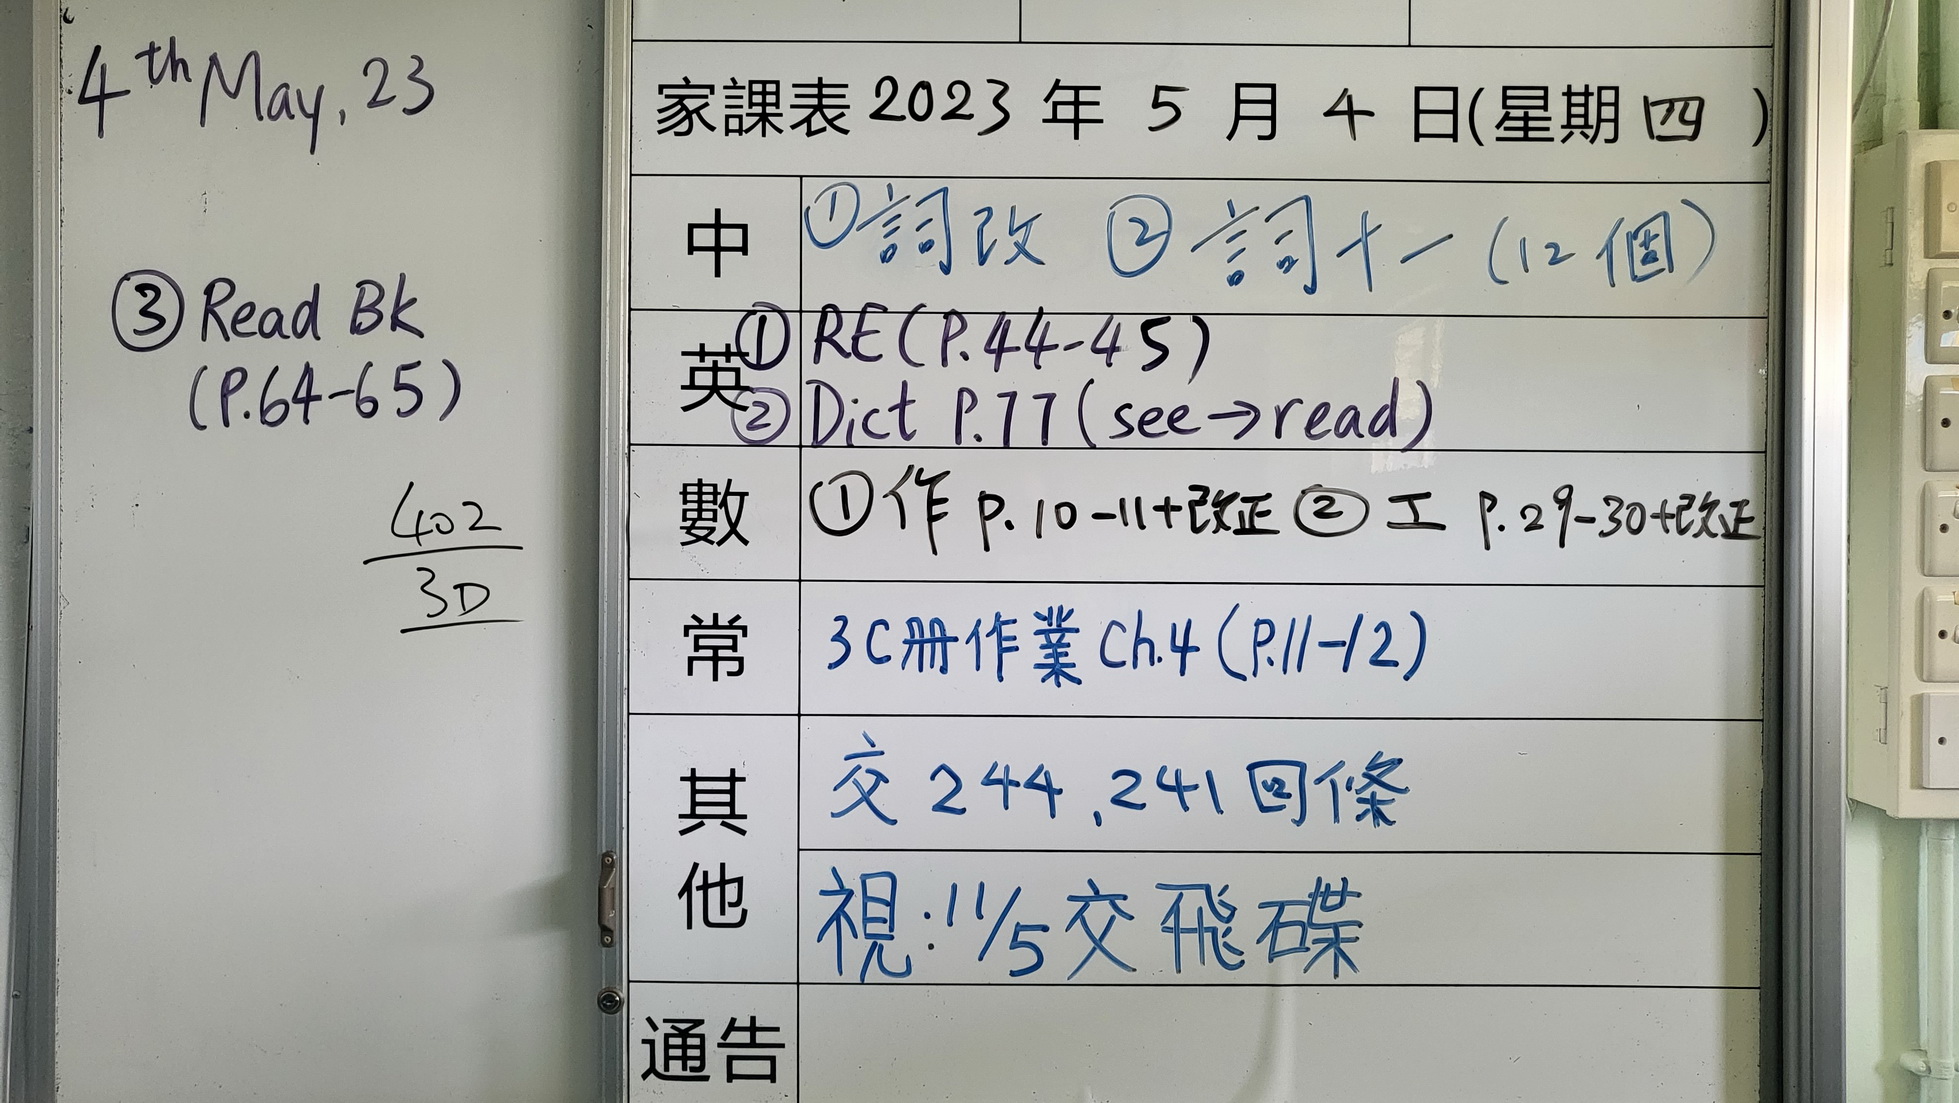 4th May, 23
③ Read BK
(P.64-65)
402
3D
家課表 2023 年 5 月 4 日(星期 四 )
中 ①詞改 ②詞十一 (12個)
英 ① RE (P.44-45)
② Dict P.77 (see→read)
數 ①作 p.10-11+改正 ②工 p.29-30+改正
常 3C冊作業 Ch.4 (P.11-12)
其他
交 244,241回條
視:11/5交飛碟
通告